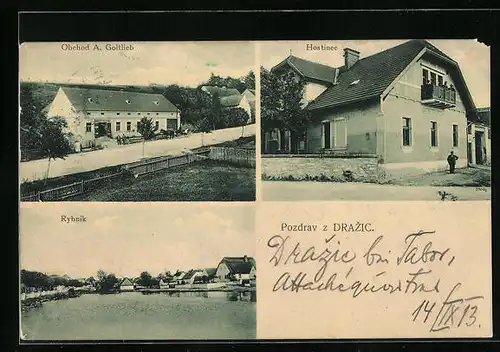 Obchod A. Gottlieb
Hostinec
Rybník
Pozdrav z DRAŽIC.
Dražic bei Tabor,
14/IX 13.